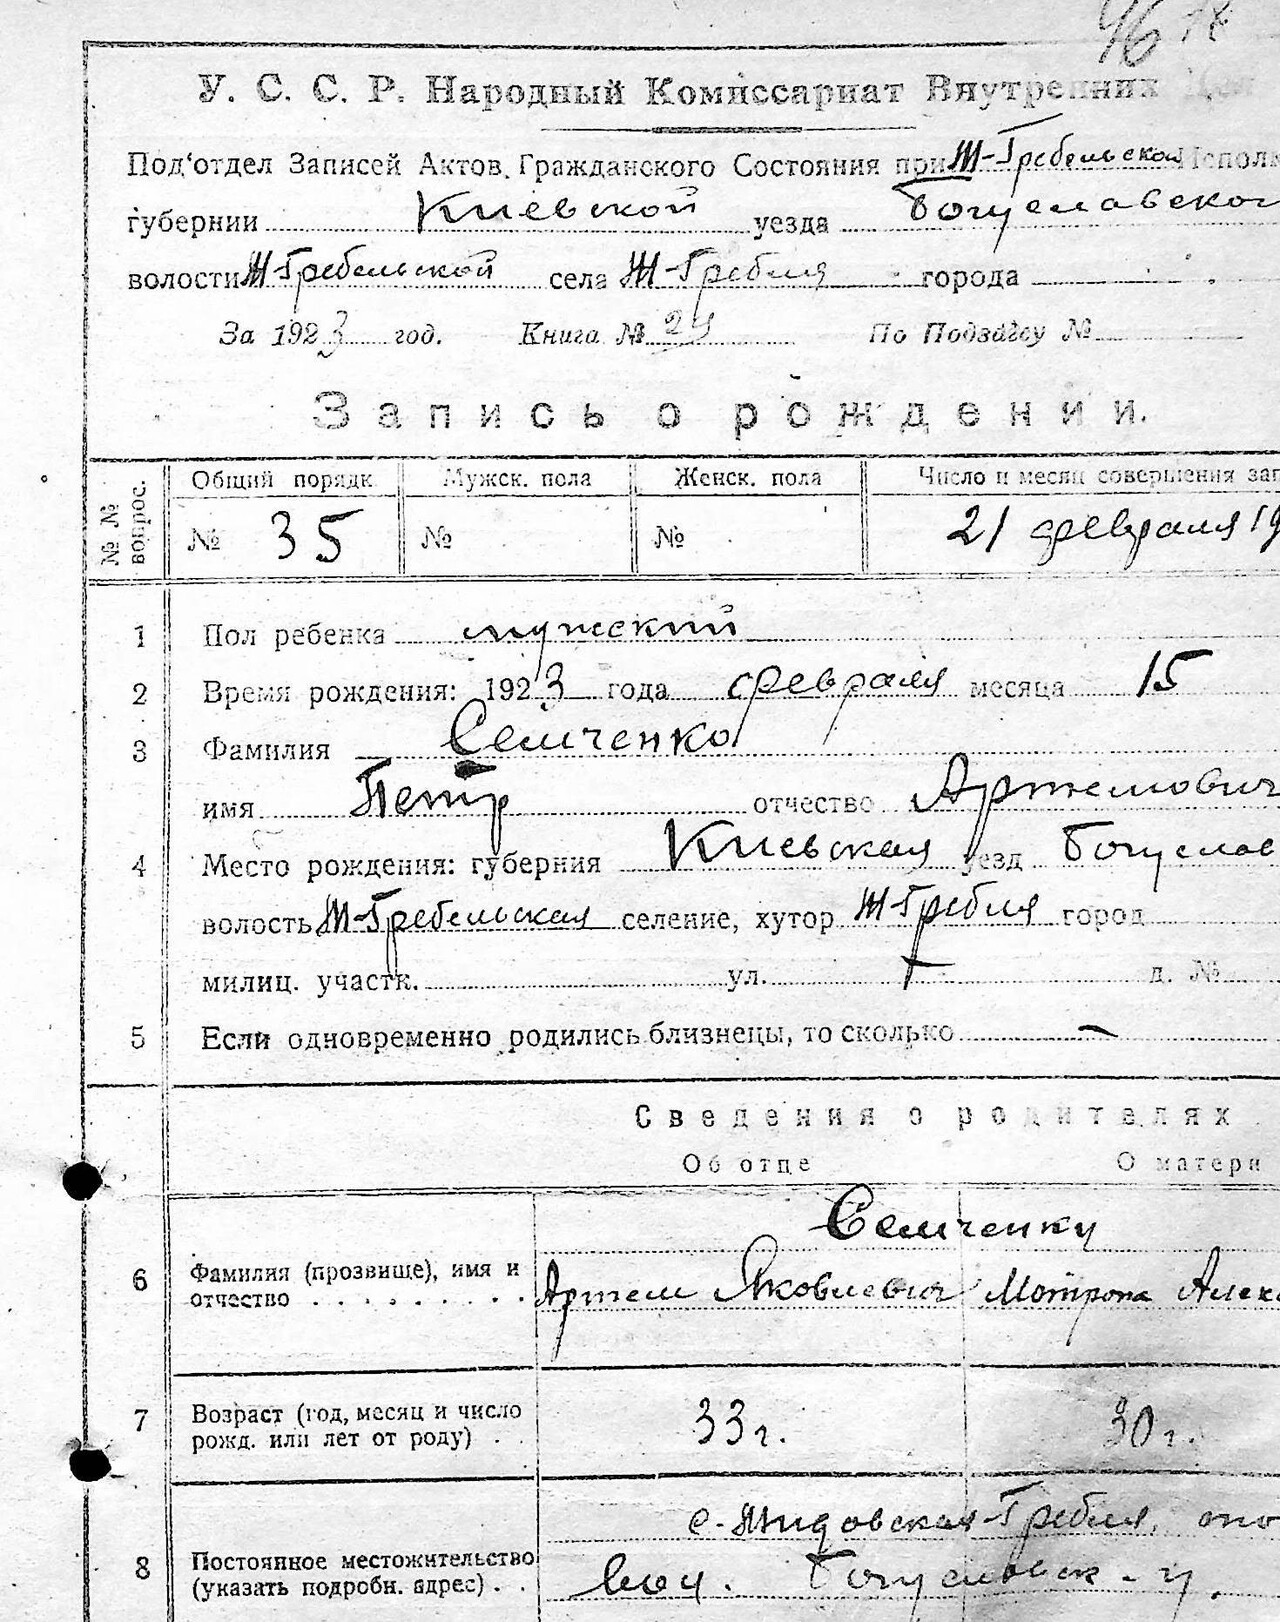 46 18
У. С. С. Р. Народный Комиссариат Внутренних Дел
Под'отдел Записей Актов Гражданского Состояния при Ж-Гребельской Исполк
губернии Киевской уезда Богуславского
волости Ж-Гребельской села Ж-Гребля города
За 1923 год. Книга № 24 По Подзагсу №
Запись о рождении.
№ № вопрос. Общий порядк. Мужск. пола Женск. пола Число и месяц совершения зап
№ 35 № № 21 февраля 19
1 Пол ребенка мужский
2 Время рождения: 1923 года февраля месяца 15
3 Фамилия Семченко
имя Петр отчество Артемович
4 Место рождения: губерния Киевская уезд Богуслав
волость Ж-Гребельская селение, хутор Ж-Гребля город
милиц. участк. ул. д. №
5 Если одновременно родились близнецы, то сколько —
Сведения о родителях
Об отце О матери
Семченку
6 Фамилия (прозвище), имя и
отчество . . . . . . . . . Артем Яковлевич Мотрона Алекс
7 Возраст (год, месяц и число
рожд. или лет от роду) . . 33 г. 30 г.
с. Жидовская-Гребля,
8 Постоянное местожительство
(указать подробн. адрес) . . вол. Богуславск - у.